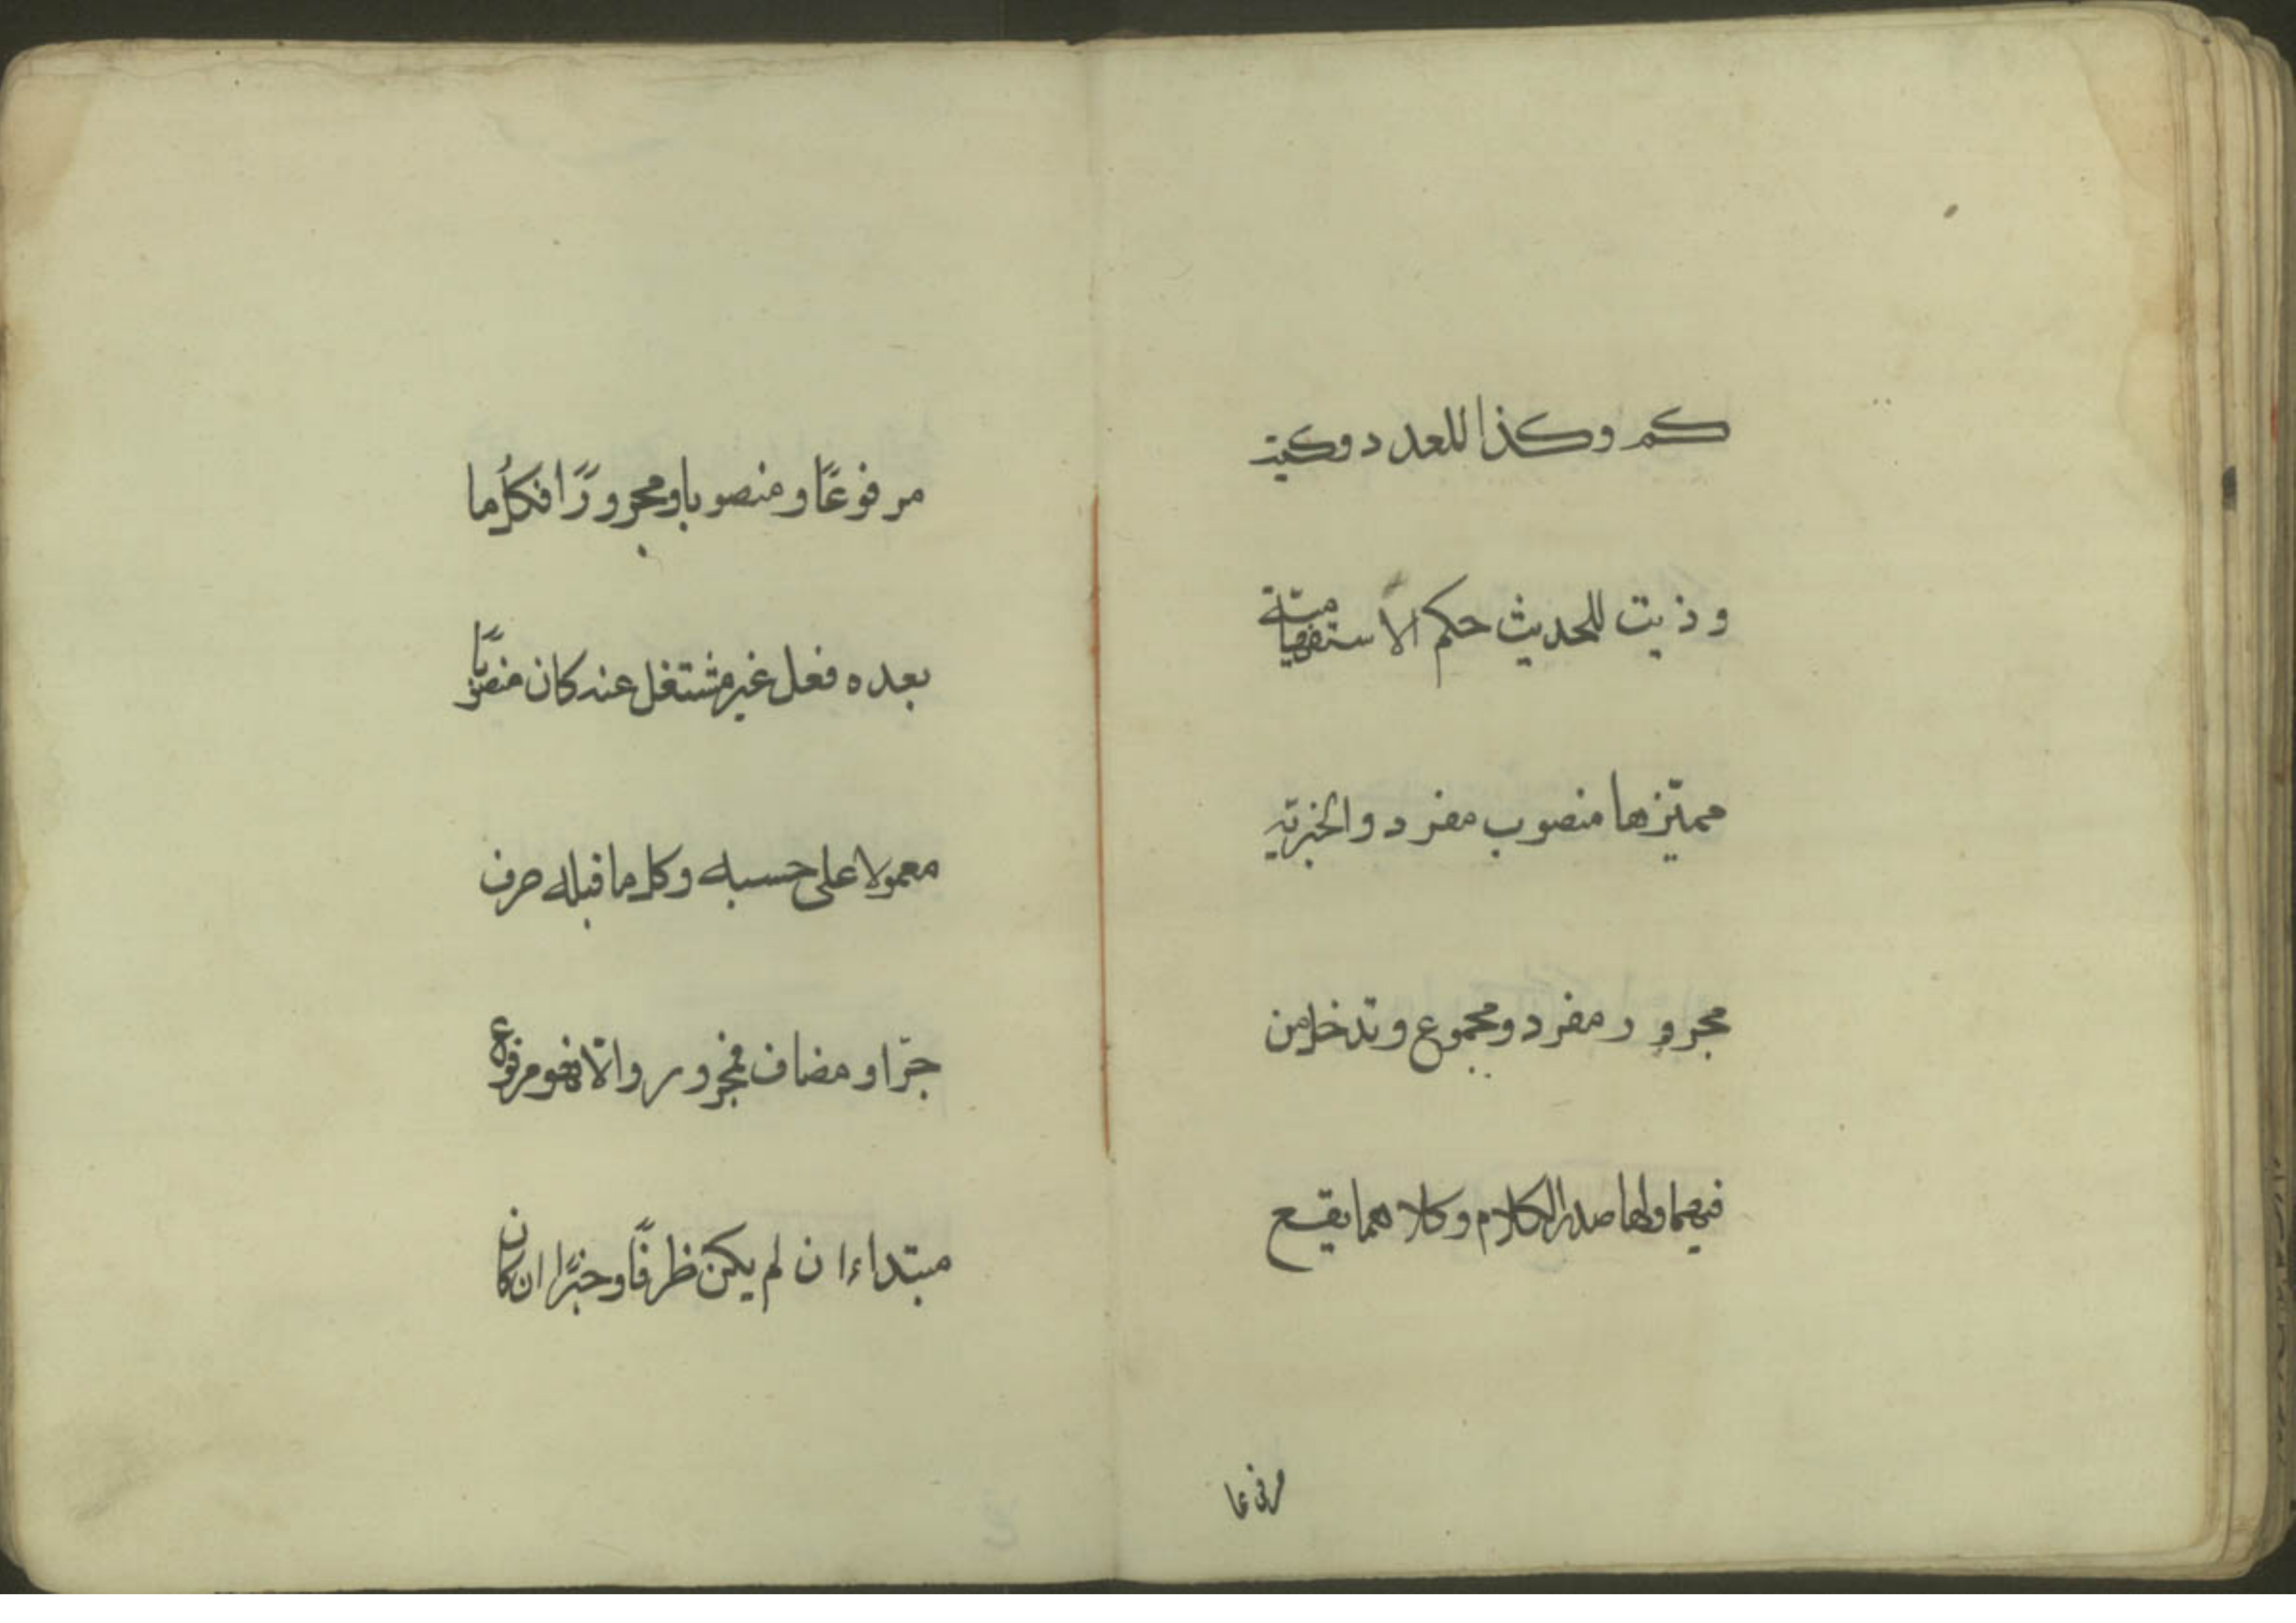 كم وكذا للعدد وكيت
وذيت للحديث حكم الاستفهامية
مميّزها منصوب مفرد والخبريّة
مجرور مفرد ومجموع وتدخل من
فيهما ولها صدر الكلام وكلاهما يقع
مرفوعا
مرفوعًا ومنصوبا ومجرورًا فكلُ ما
بعده فعل غير مشتغل عنه كان منصوبًا
معمولا على حسبه وكل ما قبله حرف
جرّ او مضاف فمجرور والّا فهو مرفوع
مبتداء ان لم يكن ظرفًا وخبرًا ان كان